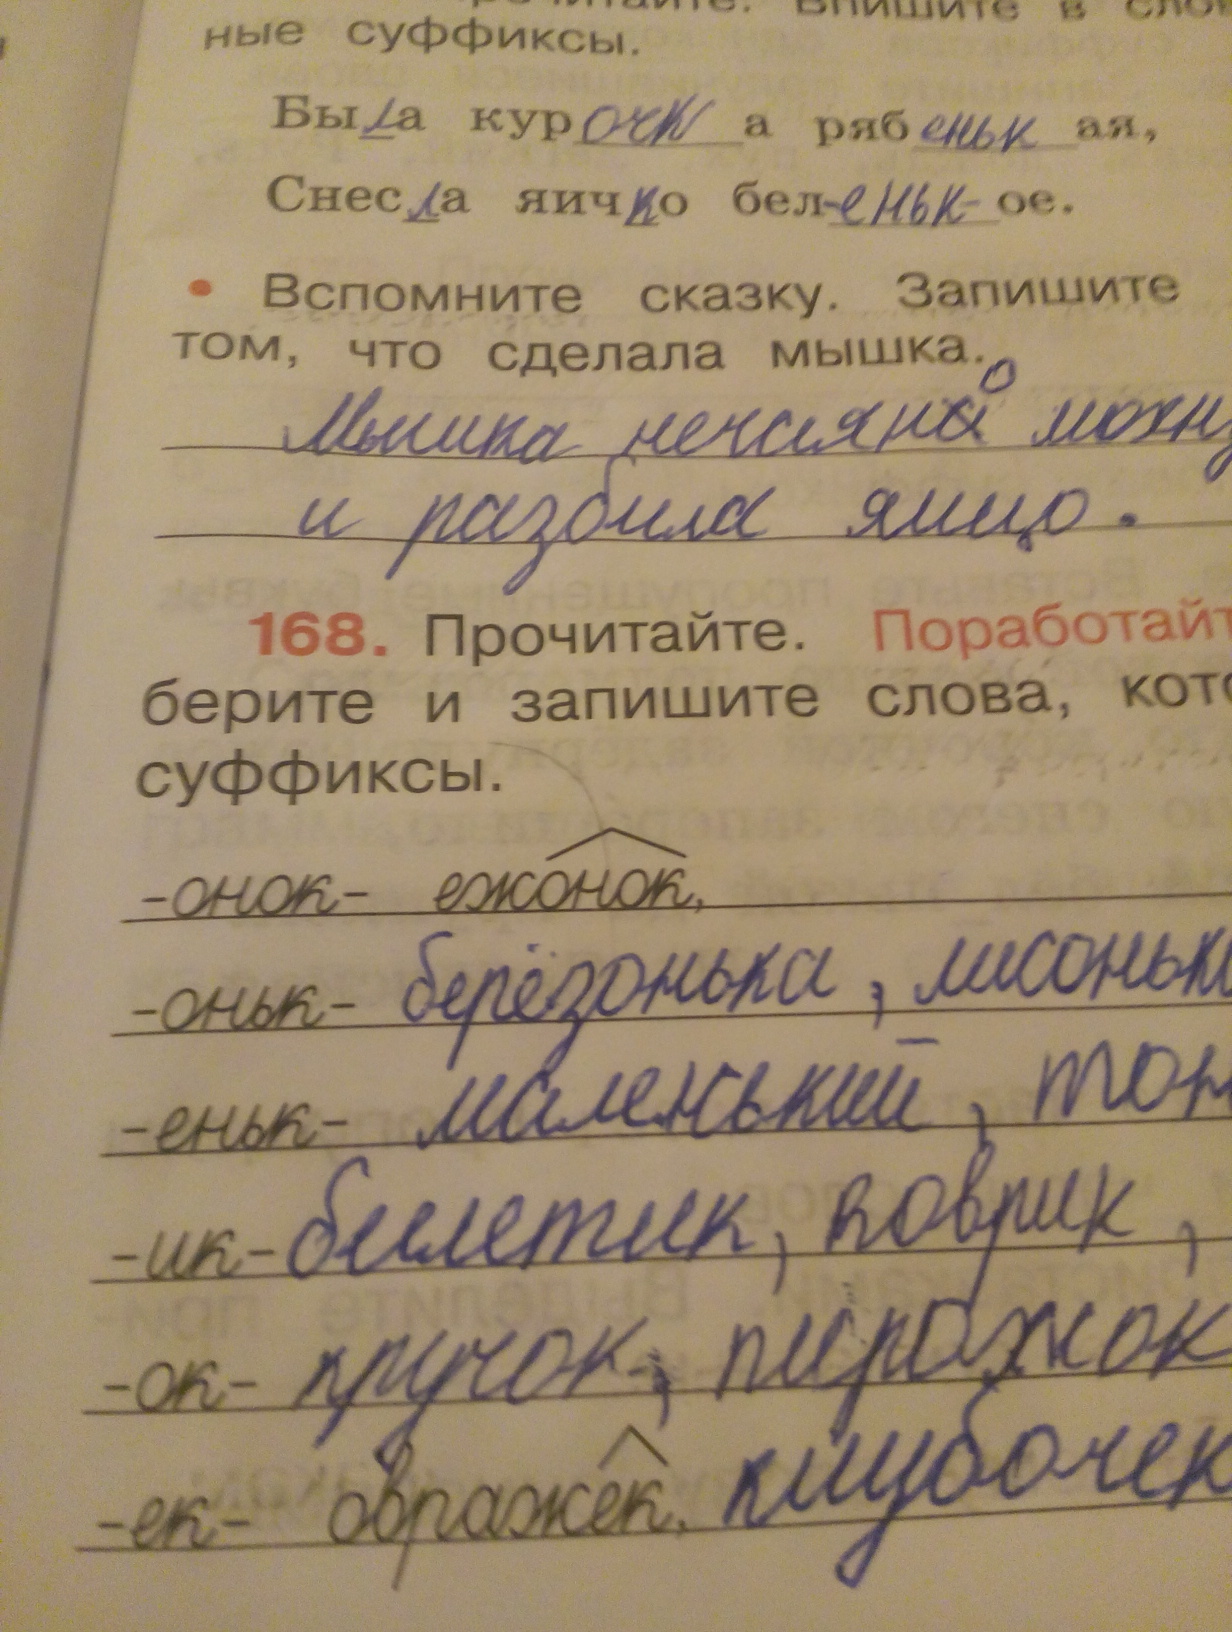 ные суффиксы.
Была курочк а рябеньк ая,
Снесла яичко бел-еньк- ое.
• Вспомните сказку. Запишите
том, что сделала мышка.
Мышка нечаяно махну
и разбила яицо.
168. Прочитайте. Поработайт
берите и запишите слова, кото
суффиксы.
-онок- ежонок,
-оньк- берёзонька, лисонька
-еньк- маленький, тон
-ик- билетик, коврик,
-ок- кручок, пирожок
-ек- овражек, клубочек